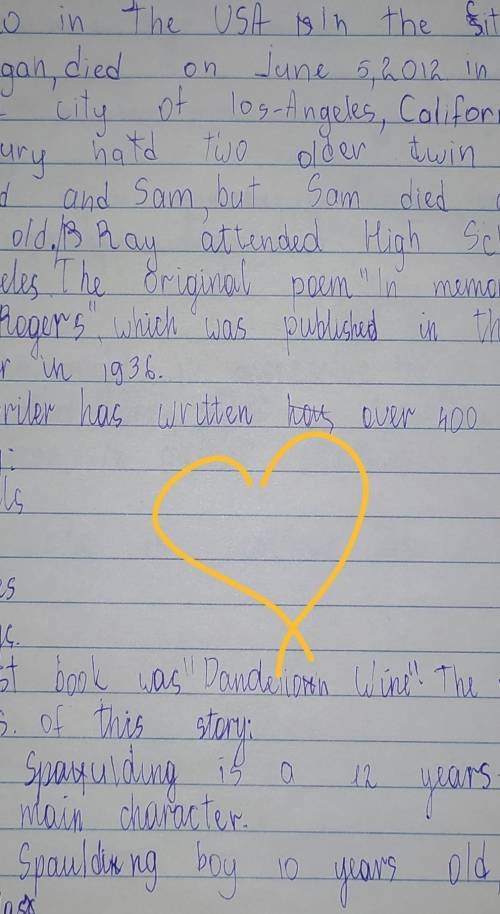 0 in the USA in the sit
gan, died on June 5, 2012 in
city of los-Angeles, Califor
ury had two older twin
d and Sam, but Sam died
old. Ray attended High Sc
eles. The original poem "In memo
Rogers", which was published in th
r in 1936.
riter has written over 400
:
ls
es
s.
st book was "Dandelion Wine". The
s. of this story:
Spaulding is a 12 years
main character.
Spaulding boy 10 years old,